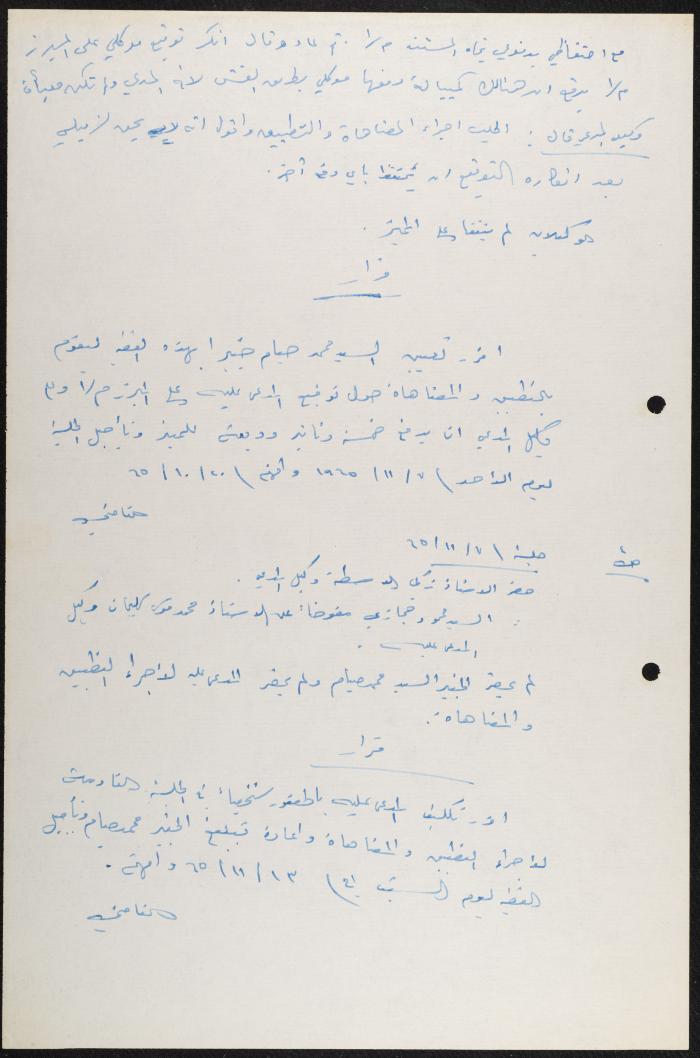 مع احتفاظي بدفوعي تجاه المستند م/١ . ثم عاد وقال انكر توقيع موكلي على المبرز
م/١ يدفع ان هنالك كمبيالة دفعها موكلي بطريق الغش لأنه المدعي ولم تكن معبأة
وكيل المدعي قال : اطلب اجراء المضاهاة والتطبيق واقول انه لا يحق لزميلي
بعد انكاره التوقيع ان يتمسك باي دفع آخر .
الوكيلان لم يتفقا على الخبير .
قرار
اقرر تعيين السيد محمد صيام خبيرا بهذه القضية ليقوم
بالتطبيق والمضاهاة حول توقيع المدعى عليه على المبرز م/١ وعلى
وكيل المدعي ان يدفع خمسة دنانير وديعة للخبير وتأجيل الجلسة
ليوم الاحد ٧/١١/١٩٦٥ وافهم ٢٠/١٠/٦٥
القاضي
جلسة ٧/١١/٦٥
حضر الاستاذ زكي الاسطة وكيل المدعي .
: السيد محمود حجازي مفوضا عن الاستاذ محمد موسى سليمان وكيل
المدعى عليه .
لم يحضر الخبير السيد محمد صيام ولم يحضر المدعى عليه لاجراء التطبيق
والمضاهاة .
قرار
اقرر تكليف المدعى عليه بالحضور شخصيا في الجلسة القادمة
لاجراء التطبيق والمضاهاة واعادة تبليغ الخبير محمد صيام وتأجيل
القضية ليوم السبت ١٣/١١/٦٥ وافهم .
القاضي